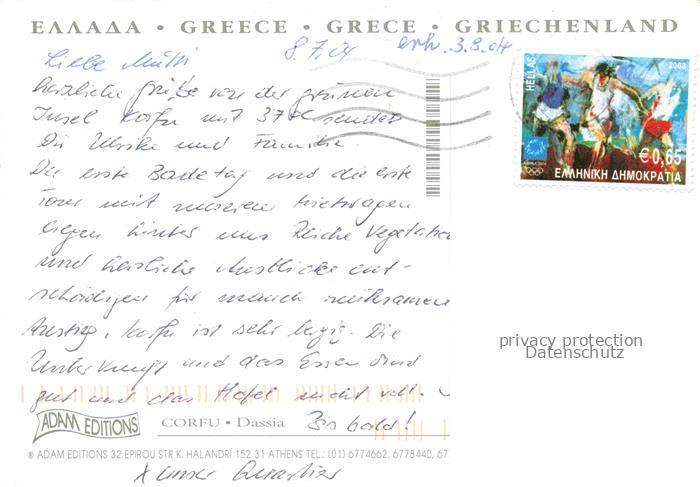 ΕΛΛΑΔΑ • GREECE • GRECE • GRIECHENLAND
Liebe Mutti 8.7.04 erh. 3.8.04
herzliche Grüße von der grünen
Insel Korfu mit 37°C sendet
Dir Ulrike und Familie.
Der erste Badetag und die erste
Tour mit unserem Mietwagen
liegen hinter uns. Reiche Vegetation
und herrliche Ausblicke ent-
schädigen für manch mühsamen
Aufstieg. Korfu ist sehr bergig. Die
Unterkunft und das Essen sind
gut und das Hotel nicht voll.
Bis bald!
HELLAS
2003
ATHENS 2004
€ 0,65
ΕΛΛΗΝΙΚΗ ΔΗΜΟΚΡΑΤΙΑ
privacy protection
Datenschutz
ADAM EDITIONS
CORFU • Dassia
® ADAM EDITIONS 32 EPIROU STR K. HALANDRI 152 31 ATHENS TEL.: (01) 6774662, 6778440, 67
x unser Quartier